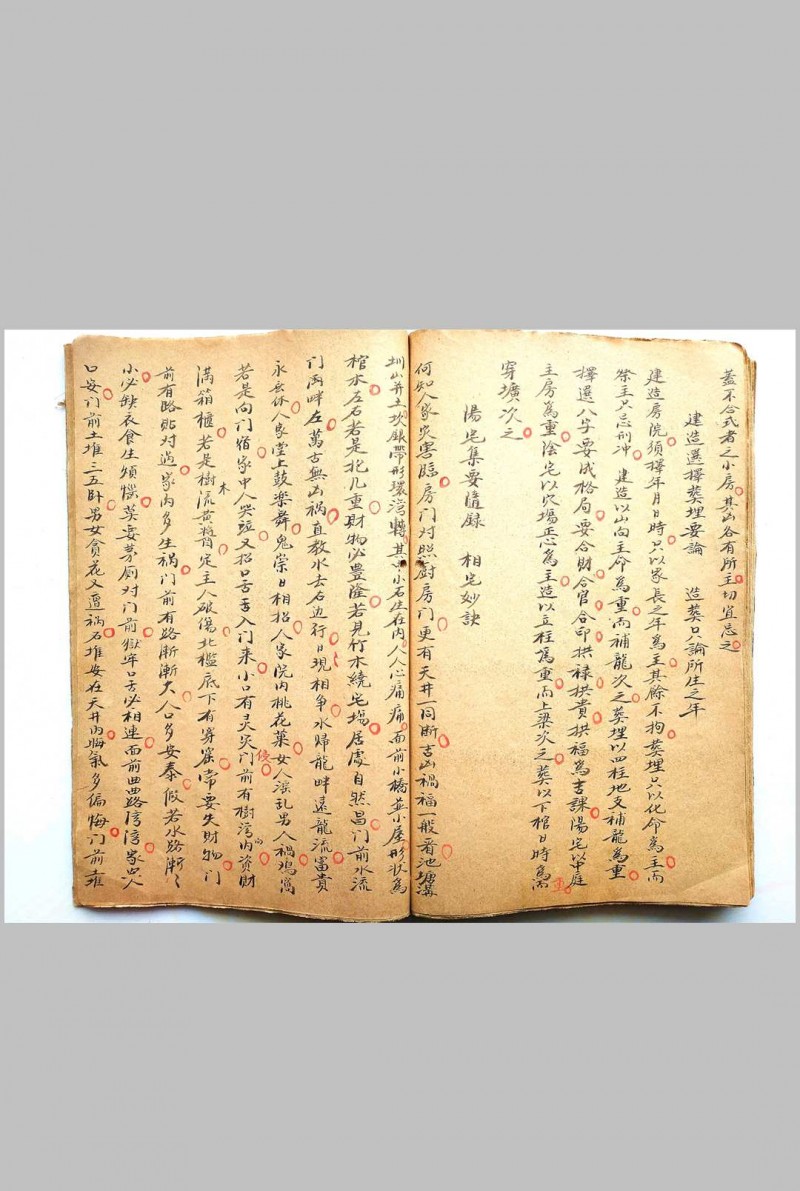 蓋不合式者之小房其凶各有所主切宜忌之
建造選擇葬埋要論　造葬只論所生之年
建造房院須擇年月日時只以家長之年為主其餘不拘葬埋只以化命為主而
祭主只忌刑冲　建造以山向主命為重而補龍次之葬埋以四柱地支補龍為重
擇選八字要成格局要合財合官合印拱禄拱貴拱福為吉課陽宅以中庭
主房為重陰宅以穴塲正心為主造以立柱為重而上梁次之葬以下棺日時為重而
穿壙次之
陽宅集要隨録　相宅妙訣
何知人家灾害臨房门对照厨房门更有天井一同断吉凶禍福一般看池塘溝
圳山井土坎銀带形環湾轉其中小石生在内人人心痛痛面前小橋並小屋形狀為
棺木左右若是花几重財物必豊隆若見竹木繞宅塲居處自然昌门前水流
门两畔左萬古無凶禍直教水去右边行日現相争水帰龍畔遠龍流富貴
永無休人家堂上鼓楽舞鬼祟日相招人家院内桃花菓女人滛乱男人禍鸡窩
若是向门宿家中人哭頭又招口舌舌入门来小口有灵灾门前有樹湾内侵資財
满箱櫃若是樹流黄水醬定主人破傷北檻底下有穿窰常要失財物门
前有路貼对过家内多生禍门前有路漸漸大人口多安泰假若水路漸漸
小必缺衣食生煩惱莫要茅厕对门前獄牢口舌必相連面前曲曲路湾湾家出人
口安门前土堆三五卧男女貪花又遭禍石堆安在天井内晦氣多偏悔门前土堆